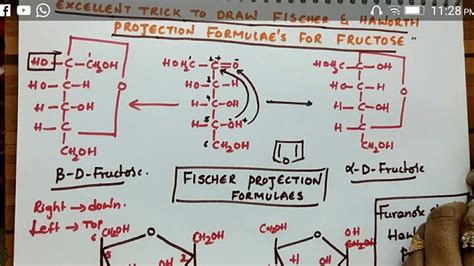 11:28 PM
EXCELLENT TRICK TO DRAW FISCHER & HAWORTH
PROJECTION FORMULAE'S FOR FRUCTOSE"
HO C CH₂OH
HO C H
H C OH
H C
CH₂OH
O
β-D-Fructose.
HOH₂C C O
HO C H
H C OH
H C OH
CH₂OH
O
FISCHER PROJECTION
FORMULAES
HOH₂C C OH
HO C H
H C OH
H C
CH₂OH
O
α-D-Fructose
Right → down.
Left → TOP
CH₂OH
O
CH₂OH
CH₂OH
O
OH
CH₂OH
H OH
H
Furanose
Haw